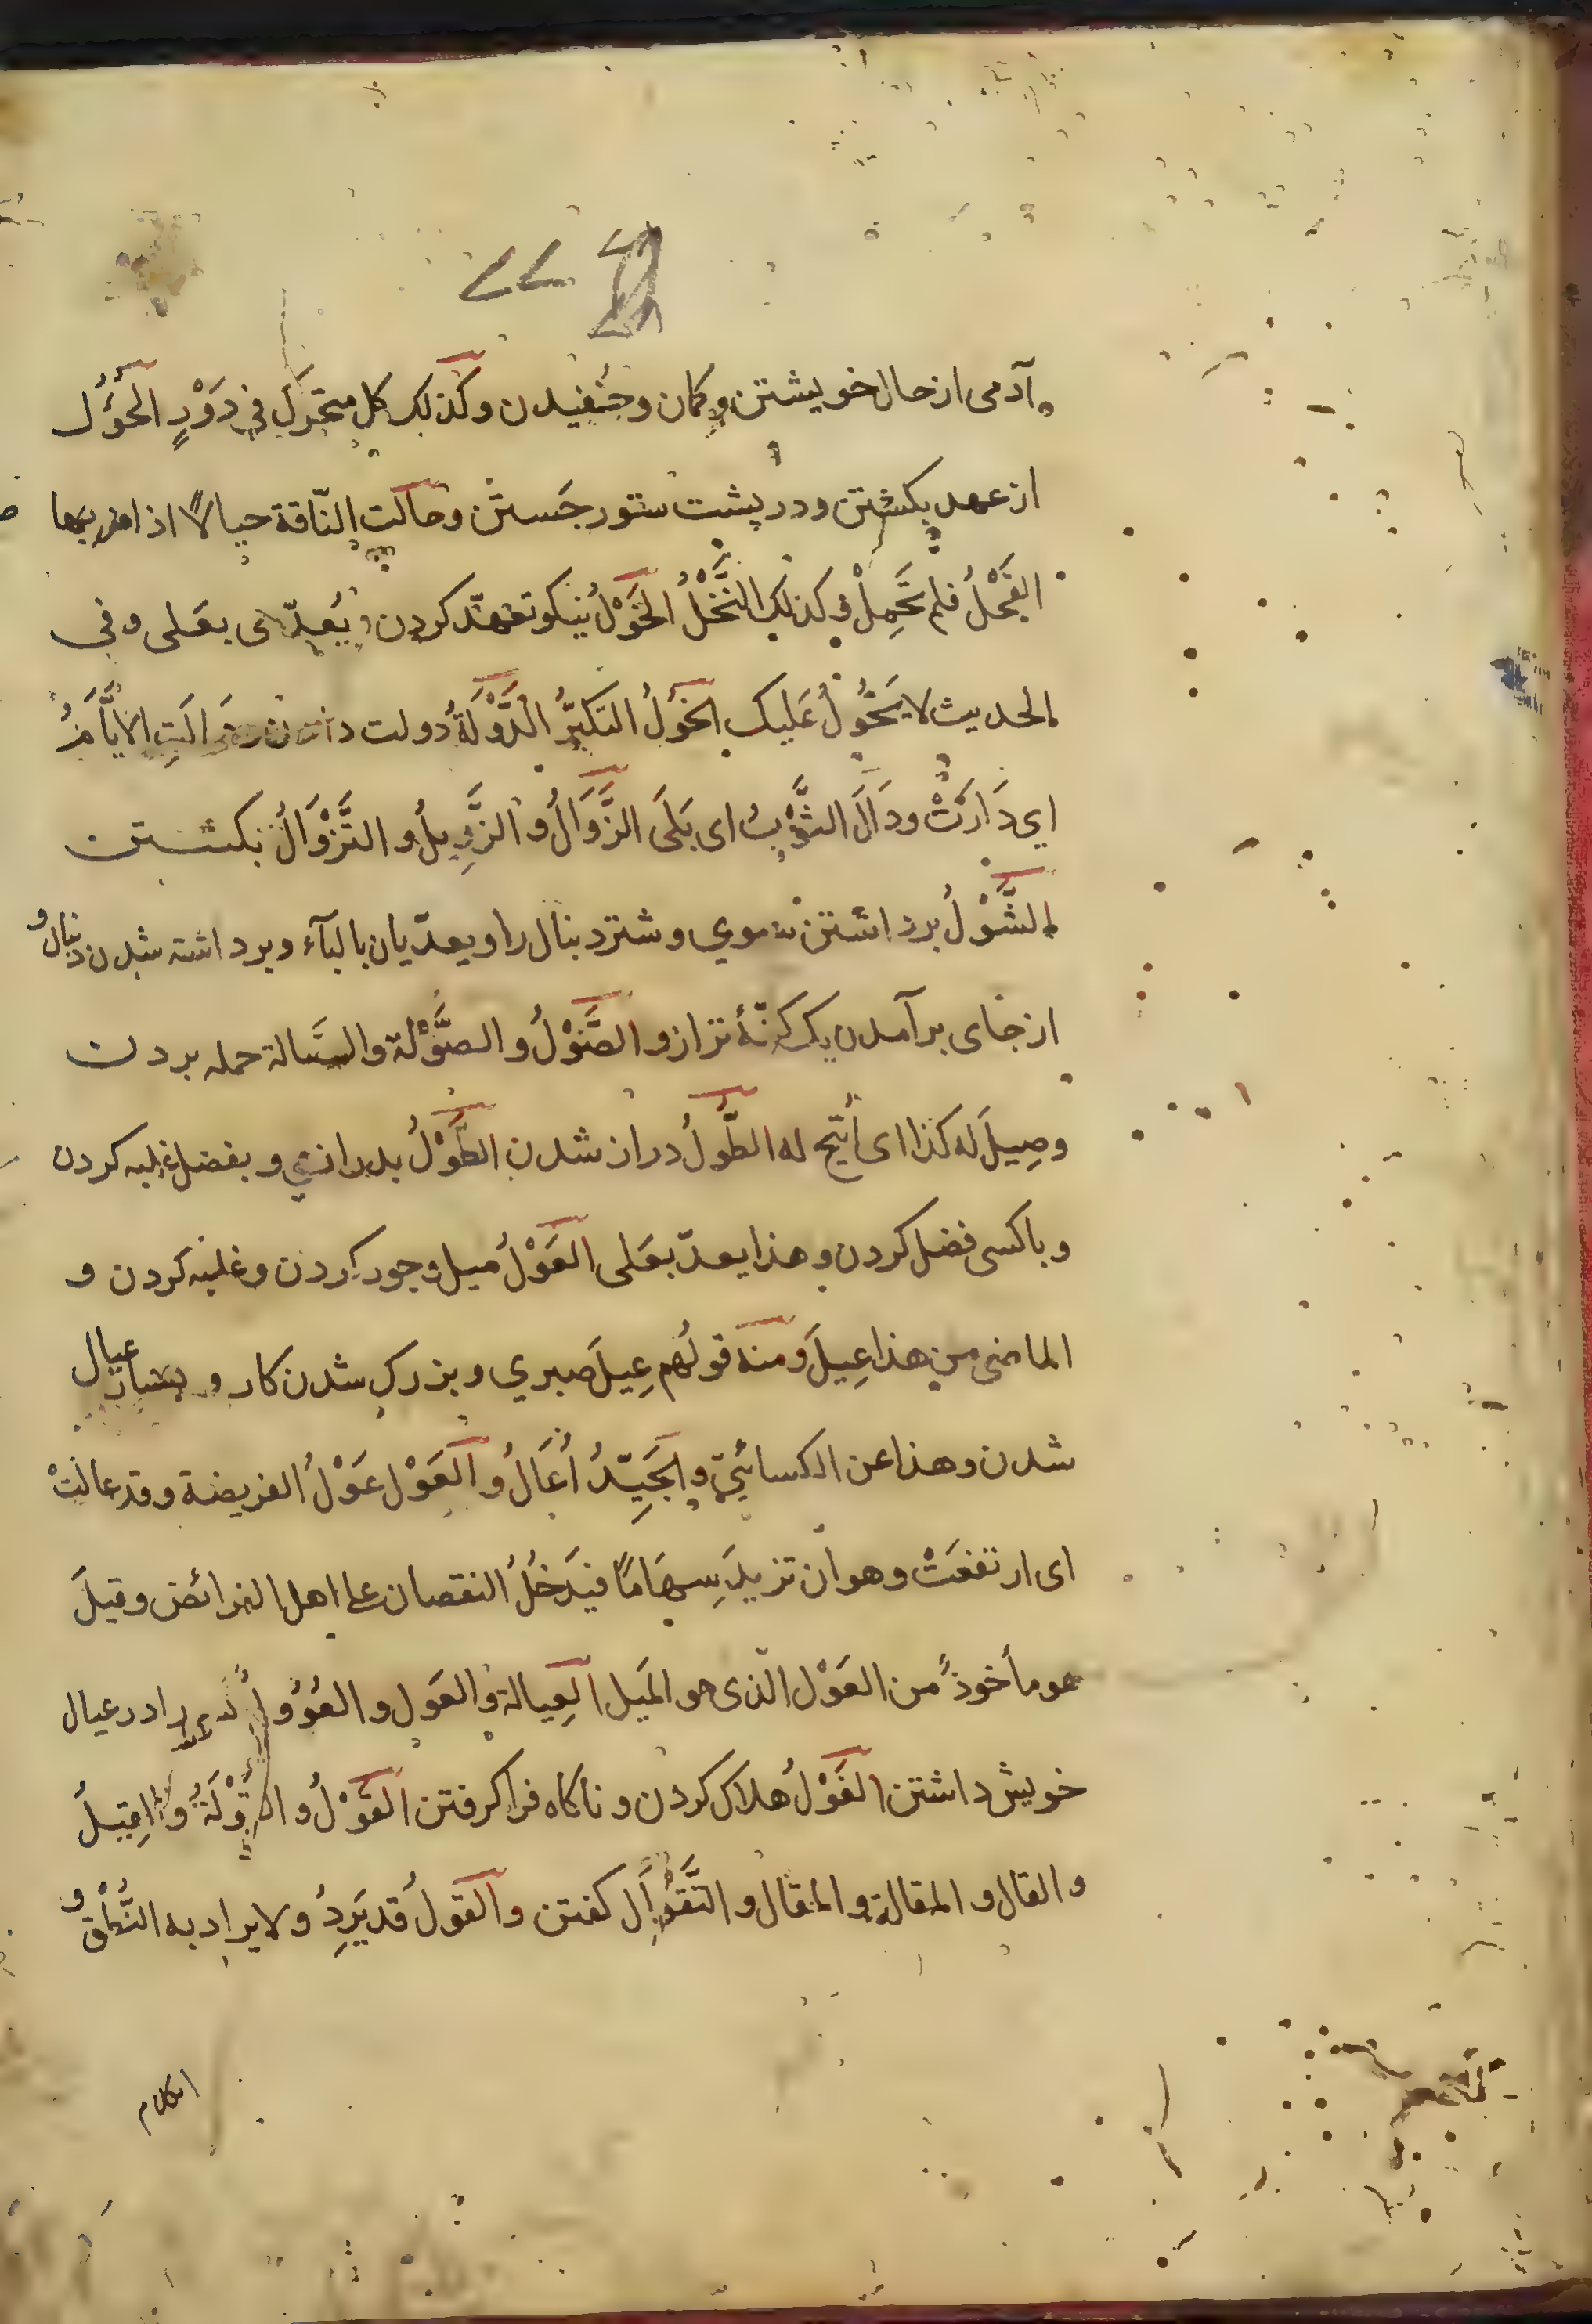 آدمی از حال خویشتن و کمان و جنبیدن وکذلک کل متحول فی دَوْرٍ الحُؤُل
از عهد بکشتن و در پشت ستور جَستن وحالت النّاقة حیالًا اذا بها
الفَحْلُ فلم تَحمِلْ وکذلک النَّخْلُ الخَوْلُ نیکو تعهّد کردن و یُعَدّی بعَلی وفی
الحدیث لا یَخُولُ عَلیک الخَوْلُ التکبّرُ الدَّوْلَةُ دولت دالَتِ الایَّامُ
ای دَارَتْ ودَالَ الثَّوْبُ ای بَلَی الزَّوَالُ و الزَّوِیلُ و التَّزْوَالُ بکشتن
الشَّوْلُ برداشتن موی و شتر دنبال را ویعدّیان بالبآء وبرداشته شدن دنبال و
از جای برآمدن یک کفّهٔ ترازو الصَّوْلُ و الصَّوْلَة والصَّالة حمله بردن
وصِیلَ له کذا ای أُتیح له الطُّولُ دراز شدن الطَّوْلُ و بفضل غلبه کردن
و باکسی فضل کردن و هذا یعدّ بعَلی العَوْلُ میل وجور کردن وغلبه کردن و
الماضی من هذا عِیلَ ومنه قولُهم عِیلَ صبری و بزرک شدن کار و بسیار عیال
شدن وهذا عن الکسائیّ والجَیّدُ أَعَالَ و العَوْل عَوْلُ الفریضة وقد عالَتْ
ای ارتفعَتْ وهو ان تزیدَ سِهَامًا فیَدخُلُ النقصان علی اهل الفرائض وقیلَ
هو مأخوذٌ من العَوْل الّذی هو المَیل العِیالة والعَول و العُؤُولُ را در عیال
خویش داشتن الغَوْلُ هلاک کردن و ناکاه فراکرفتن القَوْلُ و القَوْلَةُ و القِیلُ
و القال و المقالة و المقال و التَّقْوَال کفتن و القولُ قد یَرِدُ ولا یراد به النُّطْق و
الکلام